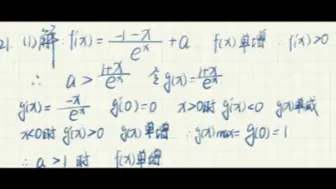 21. (1)解: f'(x)= (-1-x)/e^x +a f(x)单增 ∴f'(x)>0
∴ a > (1+x)/e^x 令g(x)= (1+x)/e^x
g'(x)= -x/e^x g'(0)=0 x>0时 g'(x)<0 g(x)单减
x<0时 g'(x)>0 g(x)单增 ∴g(x)max= g(0)=1
∴ a>1 时 f(x)单增